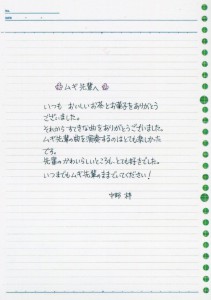 ムギ先輩へ
いつも おいしいお茶とお菓子をありがとう
ございました。
それから すてきな曲をありがとうございました。
ムギ先輩の曲を演奏するのはとても楽しかった
です。
先輩のかわいらしいところも、とても好きでした。
いつまでもムギ先輩のままでいてください！
中野 梓